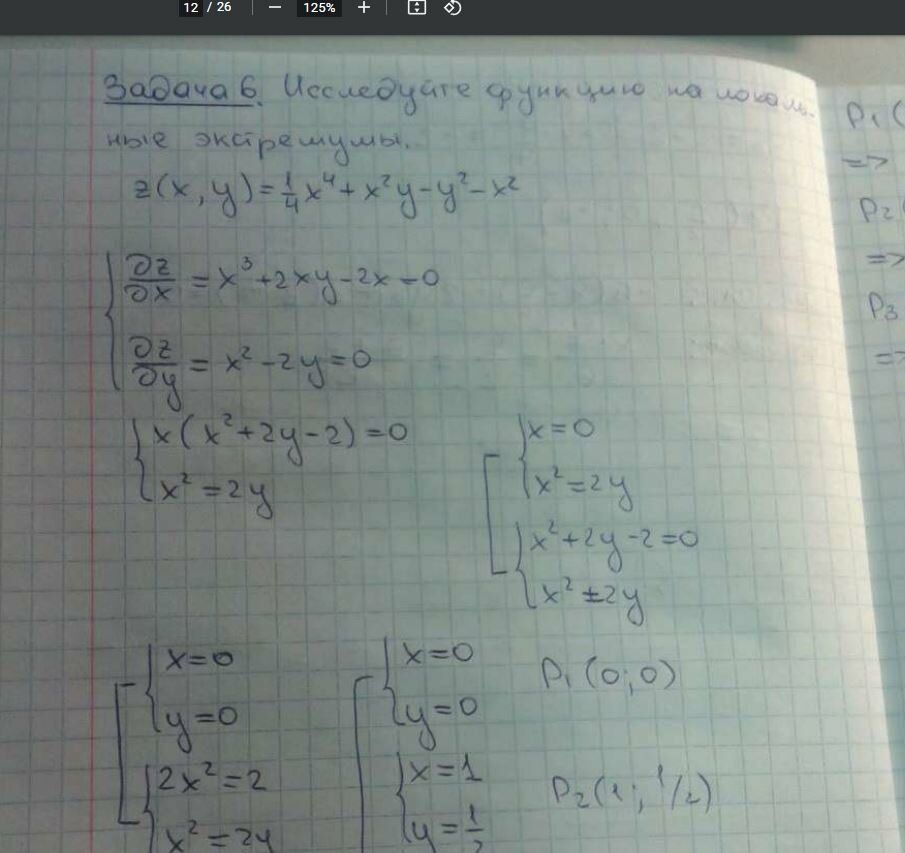 12 / 26 125%
Задача 6. Исследуйте функцию на локаль-
ные экстремумы.
z(x, y) = 1/4 x⁴ + x²y - y² - x²
∂z/∂x = x³ + 2xy - 2x = 0
∂z/∂y = x² - 2y = 0
x(x² + 2y - 2) = 0
x² = 2y
x = 0
x² = 2y
x² + 2y - 2 = 0
x² = 2y
x = 0
y = 0
2x² = 2
x² = 2y
x = 0
y = 0
x = 1
y = 1/2
P₁(0; 0)
P₂(1; 1/2)
P₁(
=>
P₂(
=>
P₃
=>